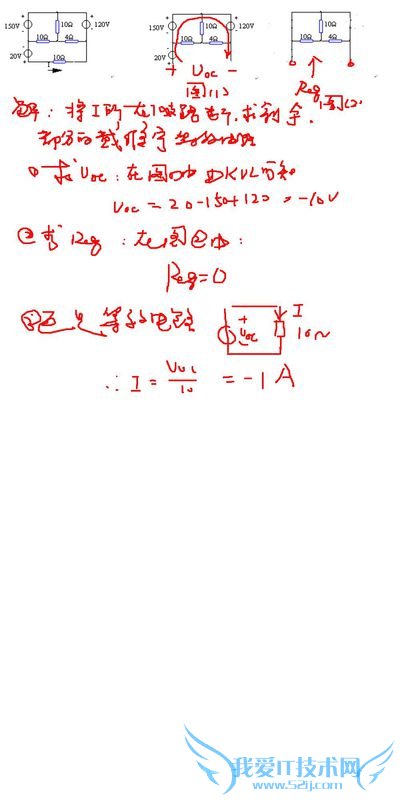 150V 10Ω 120V 150V 10Ω 120V 10Ω
10Ω 4Ω 10Ω 4Ω 10Ω 4Ω
20V 10Ω 20V
I + Uoc - Req
图(1) 图(2)
解：将I所在支路断开，求剩余
部分的戴维宁等效电路
① 求Uoc：在图(1)中由KVL可知
Uoc = 20-150+120 = -10V
② 求Req：在图②中：
Req=0
③ 等效电路 + Uoc - I 10Ω
∴ I = Uoc/10 = -1A
我爱IT技术网
www.52ij.com